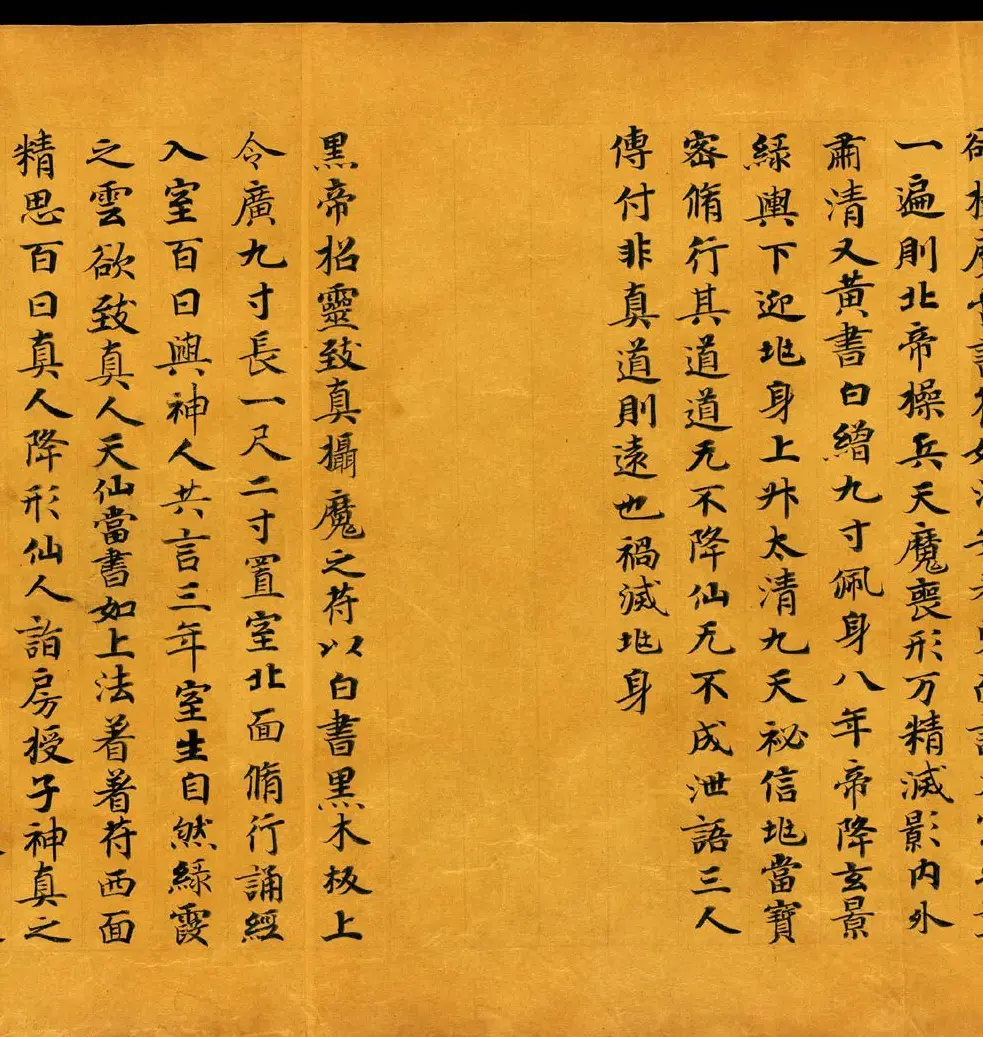 一遍則北帝操兵天魔喪形万精滅影內外
肅清又黃書白繒九寸佩身八年帝降玄景
綠輿下迎兆身上升太清九天祕信兆當寶
密脩行其道道无不降仙无不成泄語三人
傳付非真道則遠也禍滅兆身
黑帝招靈致真攝魔之苻以白書黑木板上
令廣九寸長一尺二寸置室北面脩行誦經
入室百日與神人共言三年室生自然綠霞
之雲欲致真人天仙當書如上法着着苻西面
精思百日真人降形仙人詣房授子神真之